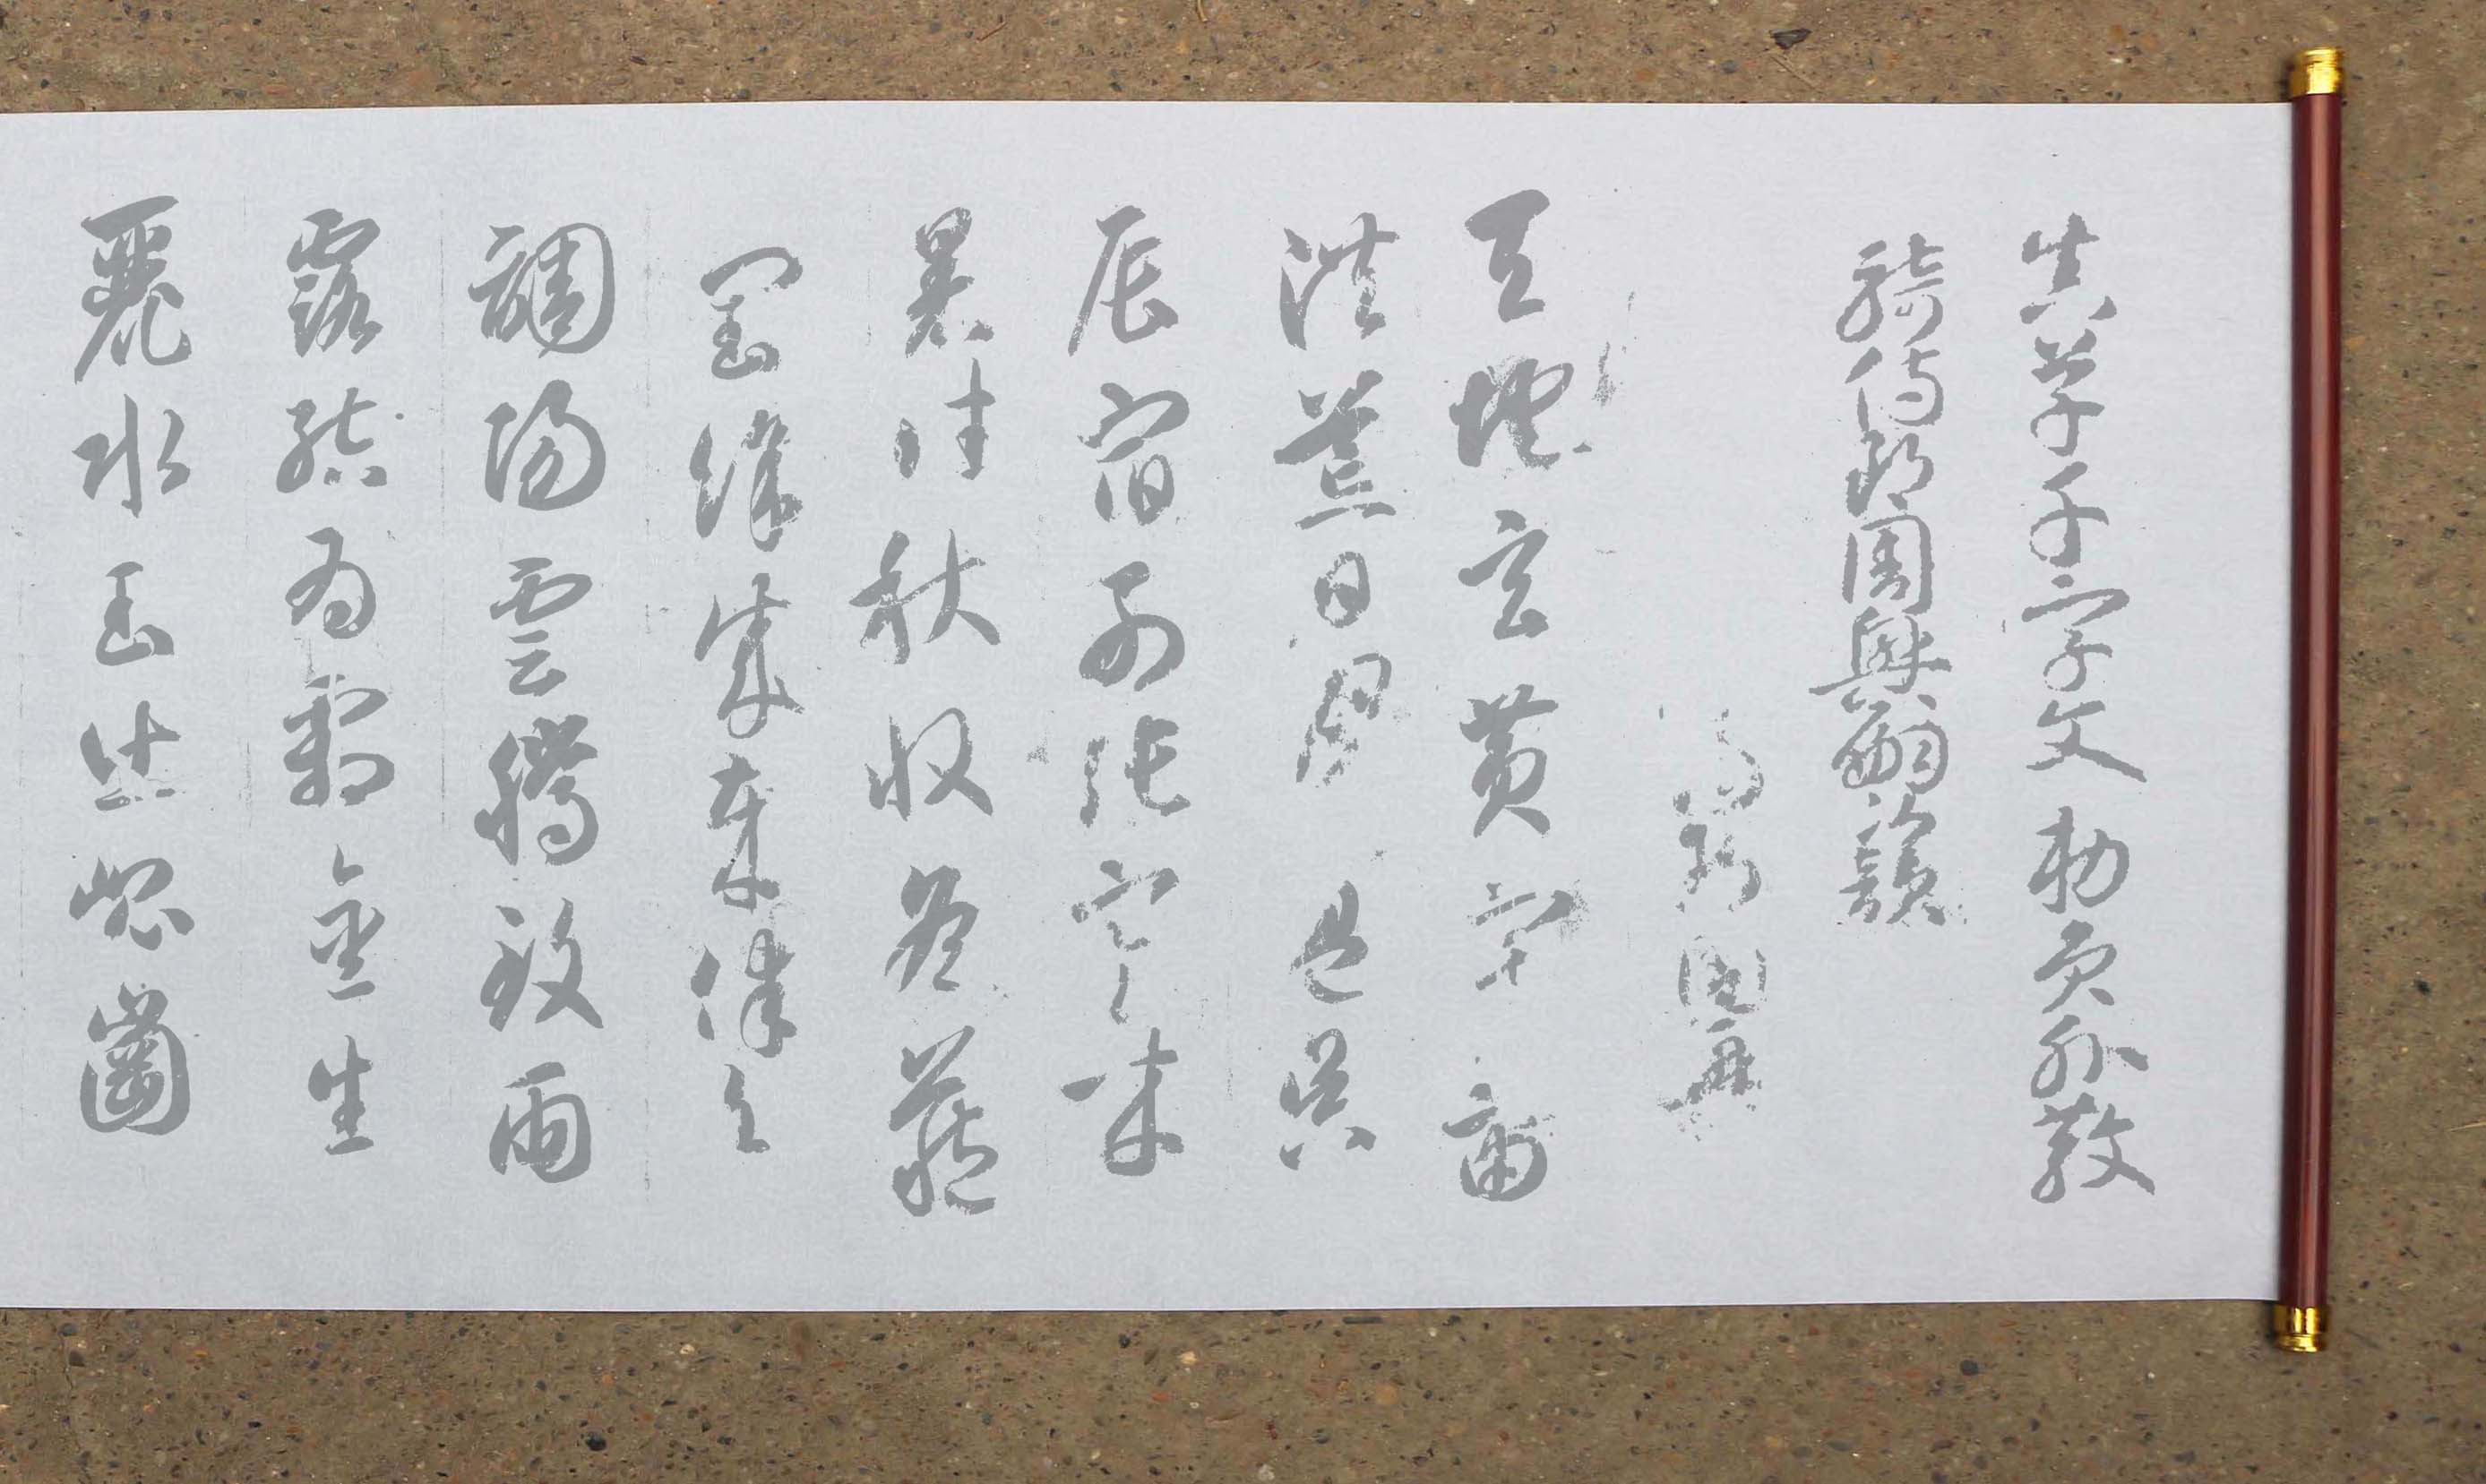 真草千字文 勅員外散
騎侍郎周興嗣韻
天地玄黃宇宙
洪荒日月盈昃
辰宿列張寒來
暑往秋收冬藏
閏餘成歲律呂
調陽雲騰致雨
露結為霜金生
麗水玉出崑崗